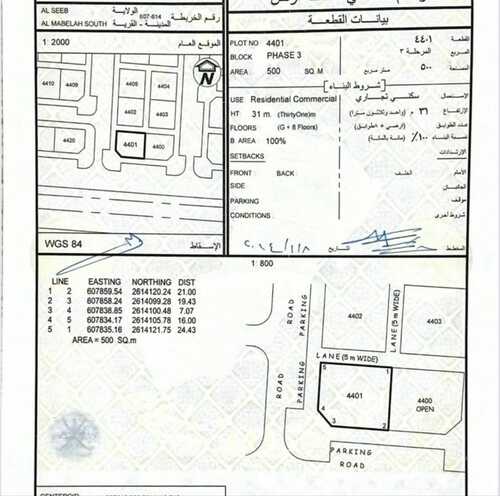 AL SEEB
الولاية
607-614
رقم الخريطة
AL MABELAH SOUTH
المدينة - القرية
بيانات القطعة
1: 2000
الموقع العام
N
4410
4409
4420
4401
4400
WGS 84
الإسقاط
PLOT NO 4401
٤٤٠١
القطعة
BLOCK PHASE 3
المرحلة ٣
المربع
AREA 500 SQ. M
٥٠٠
متر مربع
المساحة
شروط البناء
USE Residential Commercial
سكني تجاري
الإستعمال
HT 31 m (ThirtyOne)m
٣١ م (واحد وثلاثون مترا)
الإرتفاع
FLOORS (G + 8 Floors)
(ارضي + ٨ طوابق)
عدد الطوابق
B AREA 100%
١٠٠٪ (مائة بالمائة)
نسبة البناء
SETBACKS
الإرتدادات
FRONT BACK
الخلف
الأمام
SIDE
الجانبان
PARKING
موقف
CONDITIONS
شروط أخرى
٢٠١٤/١/٨
المخطط
1: 800
LINE EASTING NORTHING DIST
1 2 607859.54 2614120.24 21.00
2 3 607858.24 2614099.28 19.43
3 4 607838.85 2614100.48 7.07
4 5 607834.17 2614105.78 16.00
5 1 607835.16 2614121.75 24.43
AREA = 500 SQ.m
ROAD
PARKING
4402
LANE (5 m WIDE)
4403
LANE (5 m WIDE)
ROAD
PARKING
5
1
4401
4
3
2
4400
OPEN
PARKING
ROAD